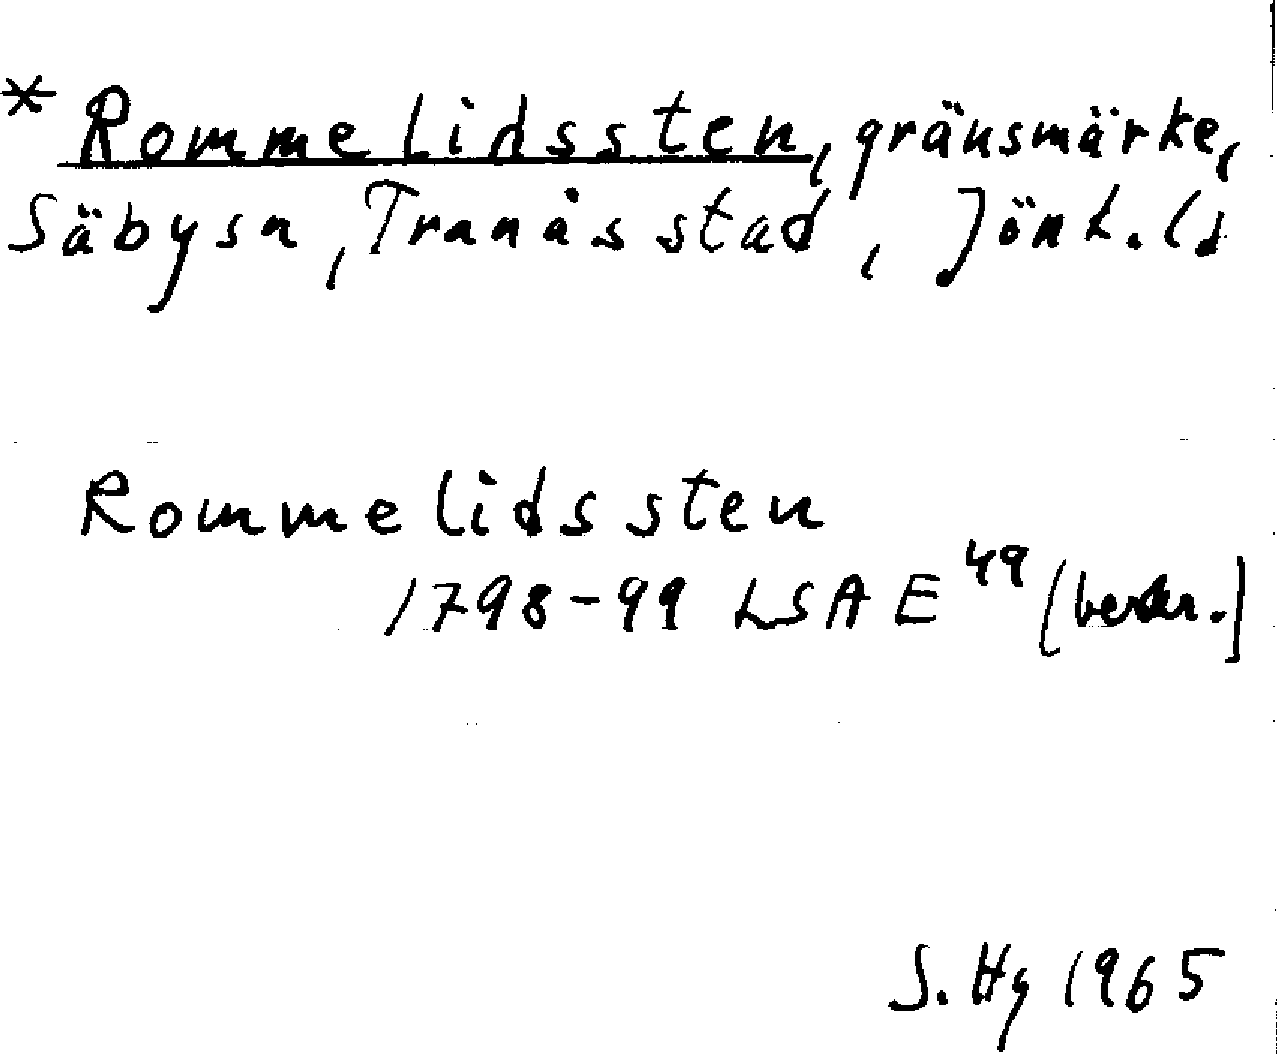 * Rommelidssten, gränsmärke,
Säbysn, Tranås stad, Jönk. ld
Rommelidssten
1798-99 LSA E 49 (beskr.)
S. Hg 1965